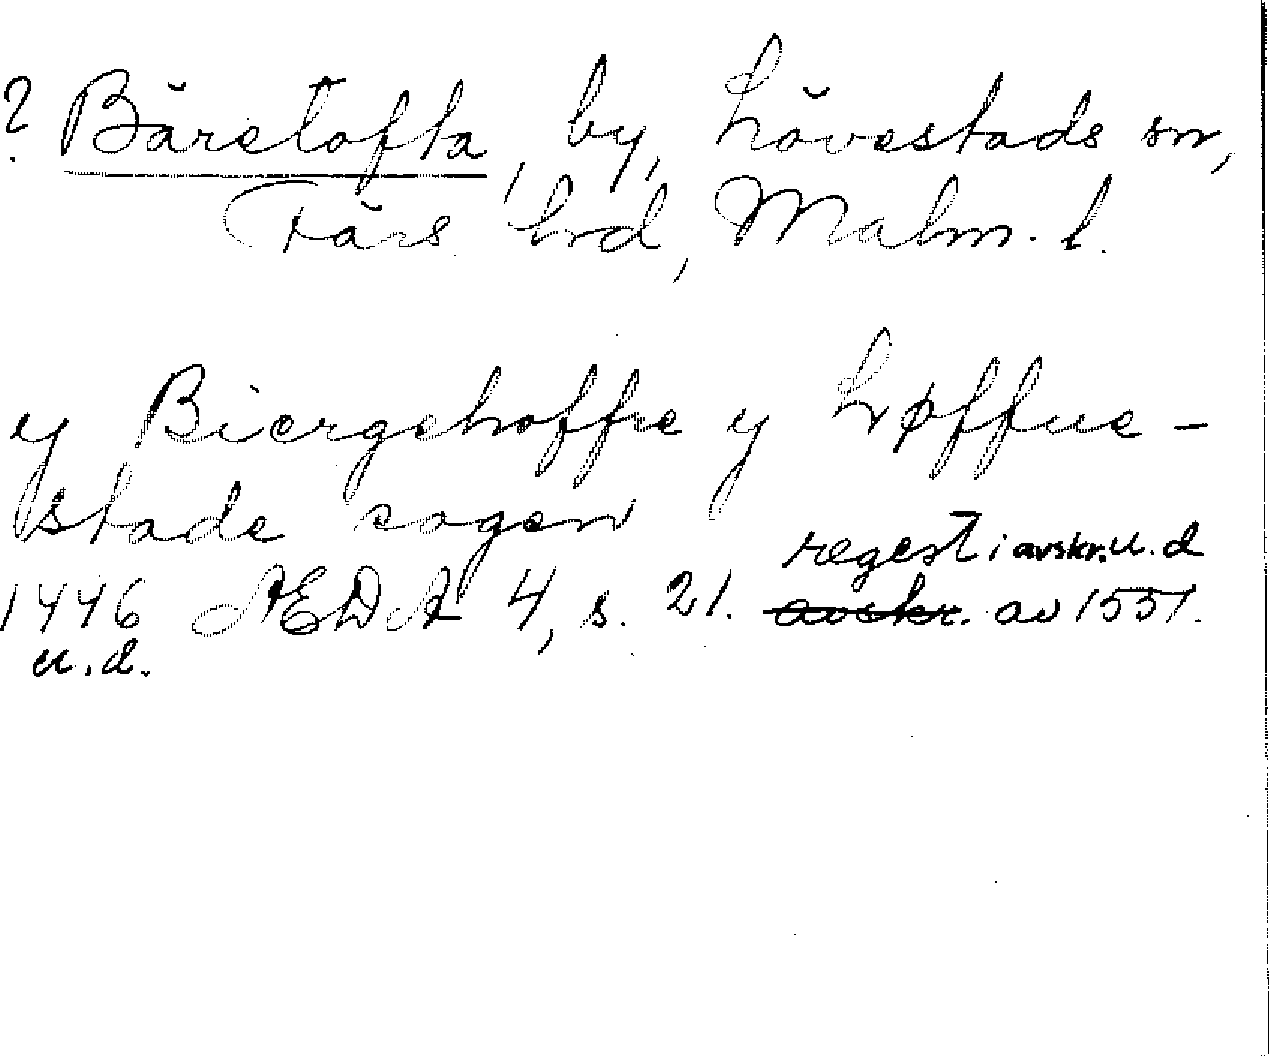 ? Bäretofta, by, Lövestads sn,
Färs hrd, Malm. l.
y Biergehoffre y Løffue-
stade sogen
regest i avskr. u. d
1446 ÆDA 4, s. 21. avskr. av 1551.
u. d.